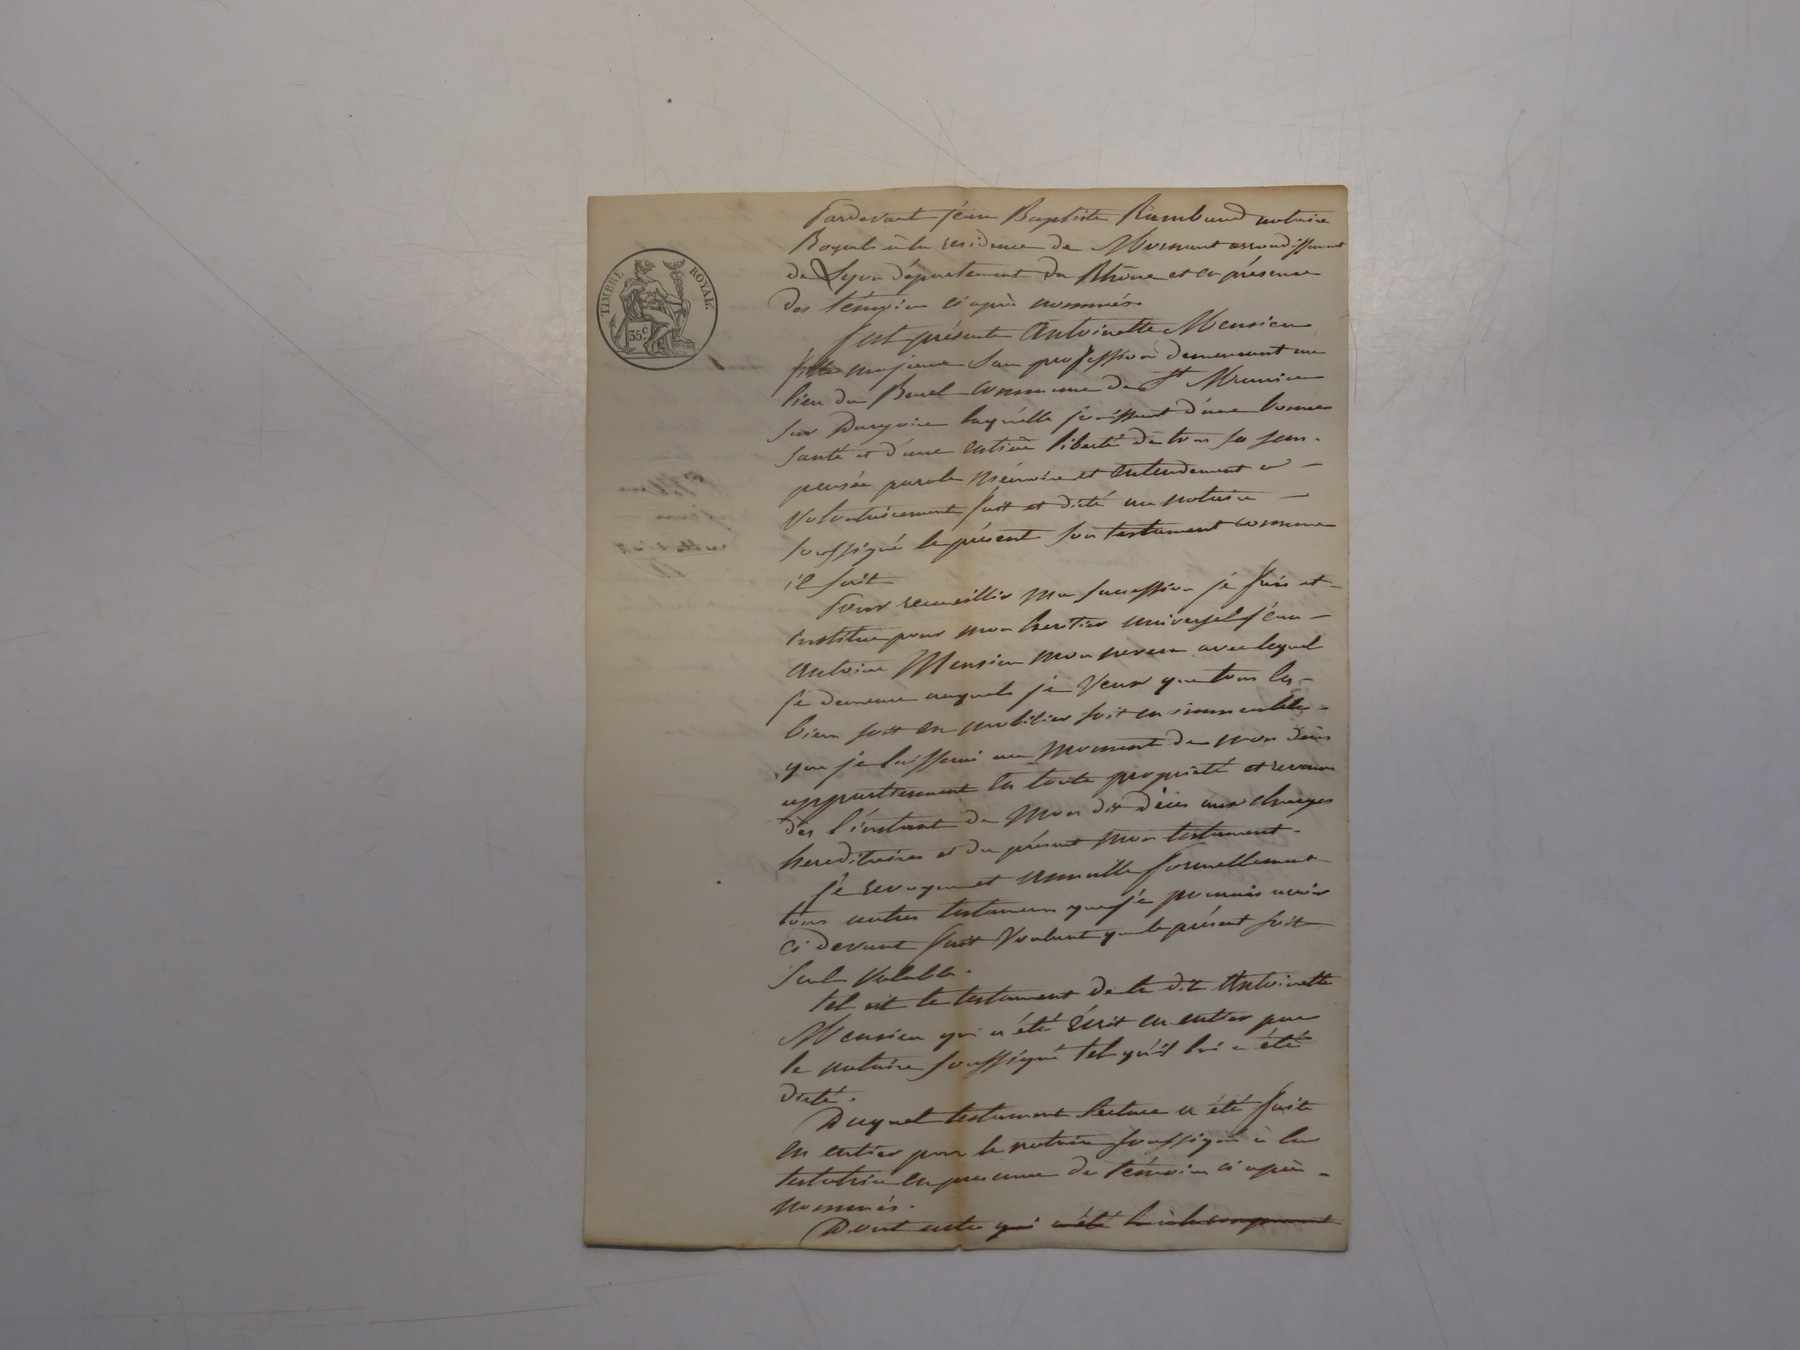 TIMBRE ROYAL.
35c
Pardevant Jean Baptiste Rambaud notaire
Royal à la residence de Mornant arrondissement
de Lyon département du Rhône et en présence
des témoins ci après nommés
fut présente Antoinette Mensieu
fille majeure sans profession demeurant au
lieu du Burel commune de St Maurice
sur Dargoire laquelle jouissant d'une bonne
santé et d'une entière liberté de tous ses sens.
pensée parole mémoire et entendement a
volontairement fait et dicté au notaire
soussigné le présent son testament comme
il suit
Pour recueillir ma succession je fais et
institue pour mon heritier universel Jean
Antoine Mensieu mon neveu avec lequel
je demeure auquel je veux que tous les
biens soit en mobilier soit en immeubles
que je laisserai au moment de mon décès
appartiennent en toute propriété et revenu
dès l'instant de mon dit décès aux charges
hereditaires et du présent mon testament.
Je revoque et annulle formellement
tous autres testamens que je pourrais avoir
ci devant fait voulant que le présent soit
seul valable.
Tel est le testament de la dite Antoinette
Mensieu qui a été écrit en entier par
le notaire soussigné tel qu'il lui a été
dicté.
Duquel testament lecture a été faite
en entier par le notaire soussigné à la
testatrice en presence des témoins ci après
nommés.
Dont acte qui a été lu à la comparant